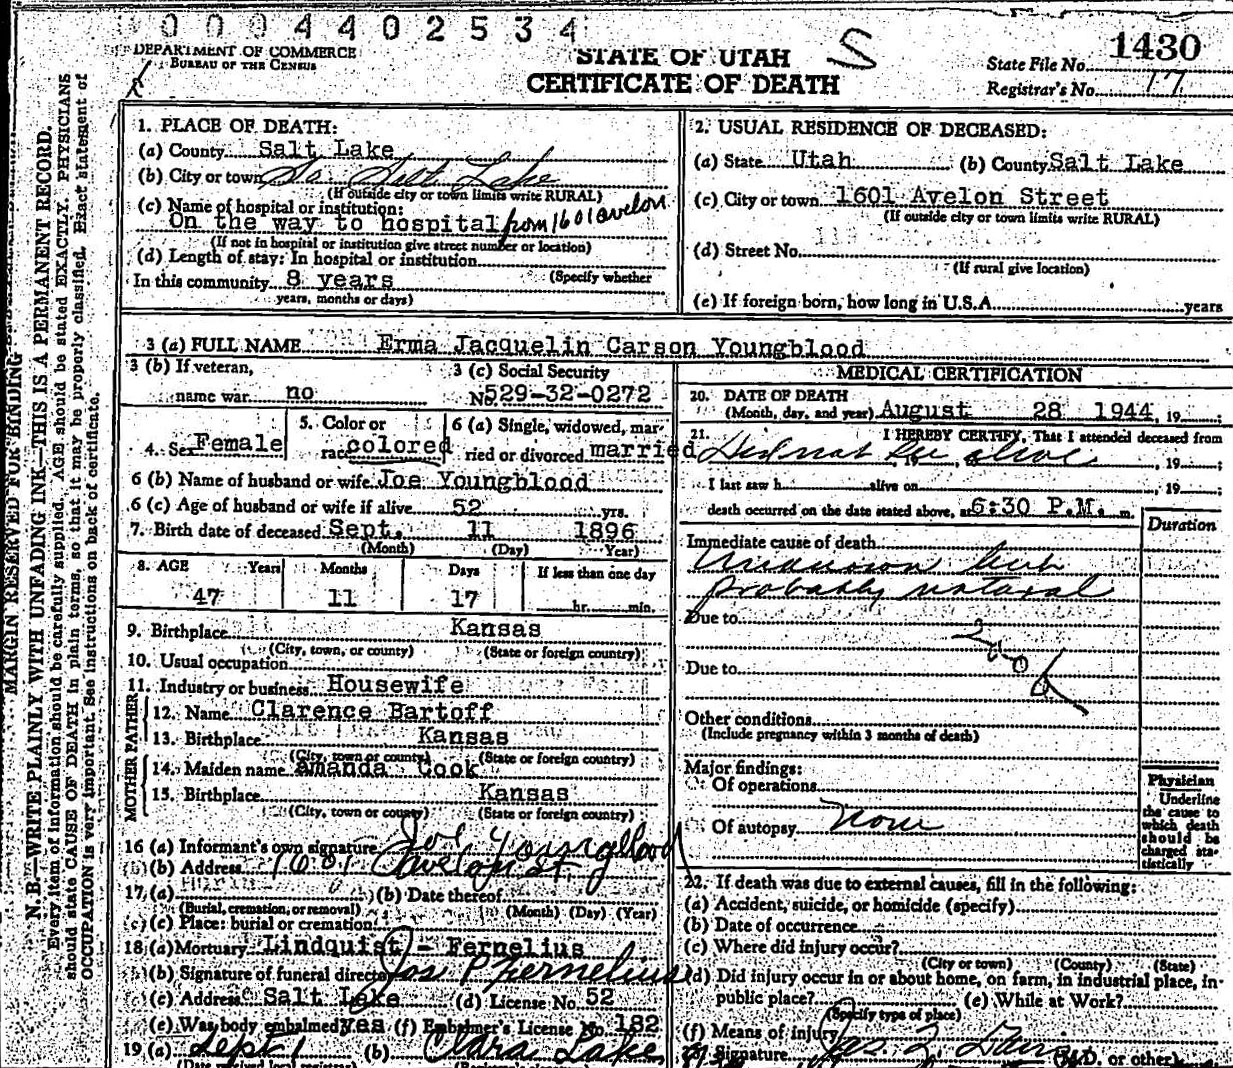 0004402534
DEPARTMENT OF COMMERCE
BUREAU OF THE CENSUS
STATE OF UTAH
CERTIFICATE OF DEATH
State File No. 1430
Registrar's No. 17
MARGIN RESERVED FOR BINDING
N. B.—WRITE PLAINLY WITH UNFADING INK—THIS IS A PERMANENT RECORD.
Every item of information should be carefully supplied. AGE should be stated EXACTLY. PHYSICIANS
should state CAUSE OF DEATH in plain terms, so that it may be properly classified. Exact statement of
OCCUPATION is very important. See instructions on back of certificate.
1. PLACE OF DEATH:
(a) County Salt Lake
(b) City or town So. Salt Lake
(If outside city or town limits write RURAL)
(c) Name of hospital or institution:
On the way to hospital from 1601 avelon
(If not in hospital or institution give street number or location)
(d) Length of stay: In hospital or institution
(Specify whether
In this community 8 years
years, months or days)
2. USUAL RESIDENCE OF DECEASED:
(a) State Utah (b) County Salt Lake
(c) City or town 1601 Avelon Street
(If outside city or town limits write RURAL)
(d) Street No.
(If rural give location)
(e) If foreign born, how long in U.S.A. years
3 (a) FULL NAME Erma Jacquelin Carson Youngblood
3 (b) If veteran,
name war no
3 (c) Social Security
No. 529-32-0272
4. Sex Female
5. Color or
race colored
6 (a) Single, widowed, mar-
ried or divorced married
6 (b) Name of husband or wife Joe Youngblood
6 (c) Age of husband or wife if alive 52 yrs.
7. Birth date of deceased Sept. 11 1896
(Month) (Day) Year)
8. AGE Years Months Days If less than one day
47 11 17 hr. min.
9. Birthplace Kansas
(City, town, or county) (State or foreign country)
10. Usual occupation
11. Industry or business Housewife
FATHER
12. Name Clarence Bartoff
13. Birthplace Kansas
(City, town or county) (State or foreign country)
MOTHER
14. Maiden name Amanda Cook
15. Birthplace Kansas
(City, town or county) (State or foreign country)
16 (a) Informant's own signature Joe Youngblood
(b) Address 1601 Avelon St.
17. (a) (b) Date thereof
(Burial, cremation, or removal) (Month) (Day) (Year)
(c) Place: burial or cremation
18. (a) Mortuary Lindquist - Fernelius
(b) Signature of funeral director Jos P Fernelius
(c) Address Salt Lake (d) License No. 52
(e) Was body embalmed? Yes (f) Embalmer's License No. 182
19 (a) Sept 1 (b) Clara Lake
MEDICAL CERTIFICATION
20. DATE OF DEATH
(Month, day, and year) August 28 1944, 19 ;
21. I HEREBY CERTIFY, That I attended deceased from
Did not see alive , 19 ;
I last saw h alive on , 19 ;
death occurred on the date stated above, at 6:30 P.M. m.
Duration
Immediate cause of death
Unknown but
probably natural
Due to
200
Due to
Other conditions
(Include pregnancy within 3 months of death)
Major findings:
Of operations
Of autopsy none
Physician
Underline
the cause to
which death
should be
charged sta-
tistically
22. If death was due to external causes, fill in the following:
(a) Accident, suicide, or homicide (specify)
(b) Date of occurrence
(c) Where did injury occur?
(City or town) (County) (State)
(d) Did injury occur in or about home, on farm, in industrial place, in-
public place? (e) While at Work?
(Specify type of place)
(f) Means of injury
Signature (M.D. or other)